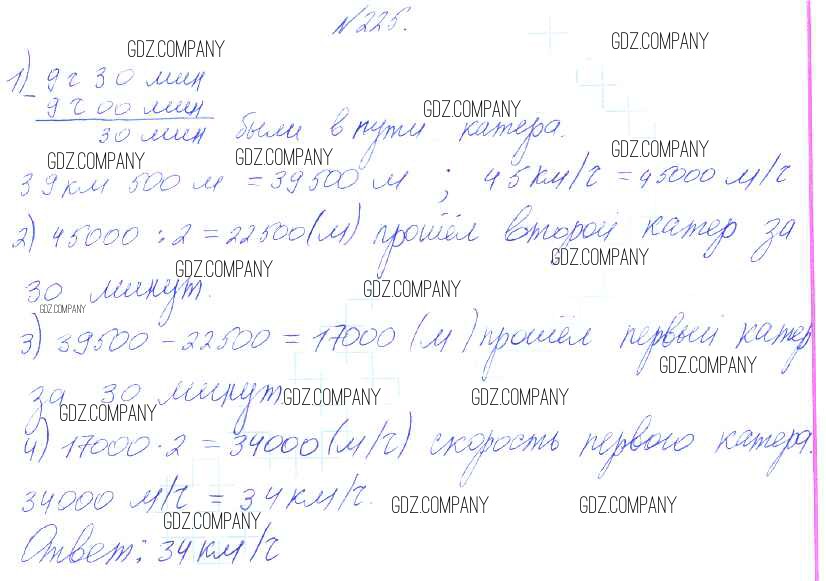 №225.
GDZ.COMPANY GDZ.COMPANY
1) 9 ч 30 мин
- 9 ч 00 мин GDZ.COMPANY
30 мин были в пути катера.
GDZ.COMPANY GDZ.COMPANY GDZ.COMPANY
39 км 500 м = 39500 м ; 45 км/ч = 45000 м/ч
2) 45000 : 2 = 22500 (м) прошёл второй катер за
GDZ.COMPANY GDZ.COMPANY
30 минут. GDZ.COMPANY
GDZ.COMPANY
3) 39500 - 22500 = 17000 (м) прошёл первый катер
GDZ.COMPANY
за 30 минут. GDZ.COMPANY GDZ.COMPANY
GDZ.COMPANY
4) 17000 · 2 = 34000 (м/ч) скорость первого катера.
34000 м/ч = 34 км/ч. GDZ.COMPANY GDZ.COMPANY
GDZ.COMPANY
Ответ: 34 км/ч